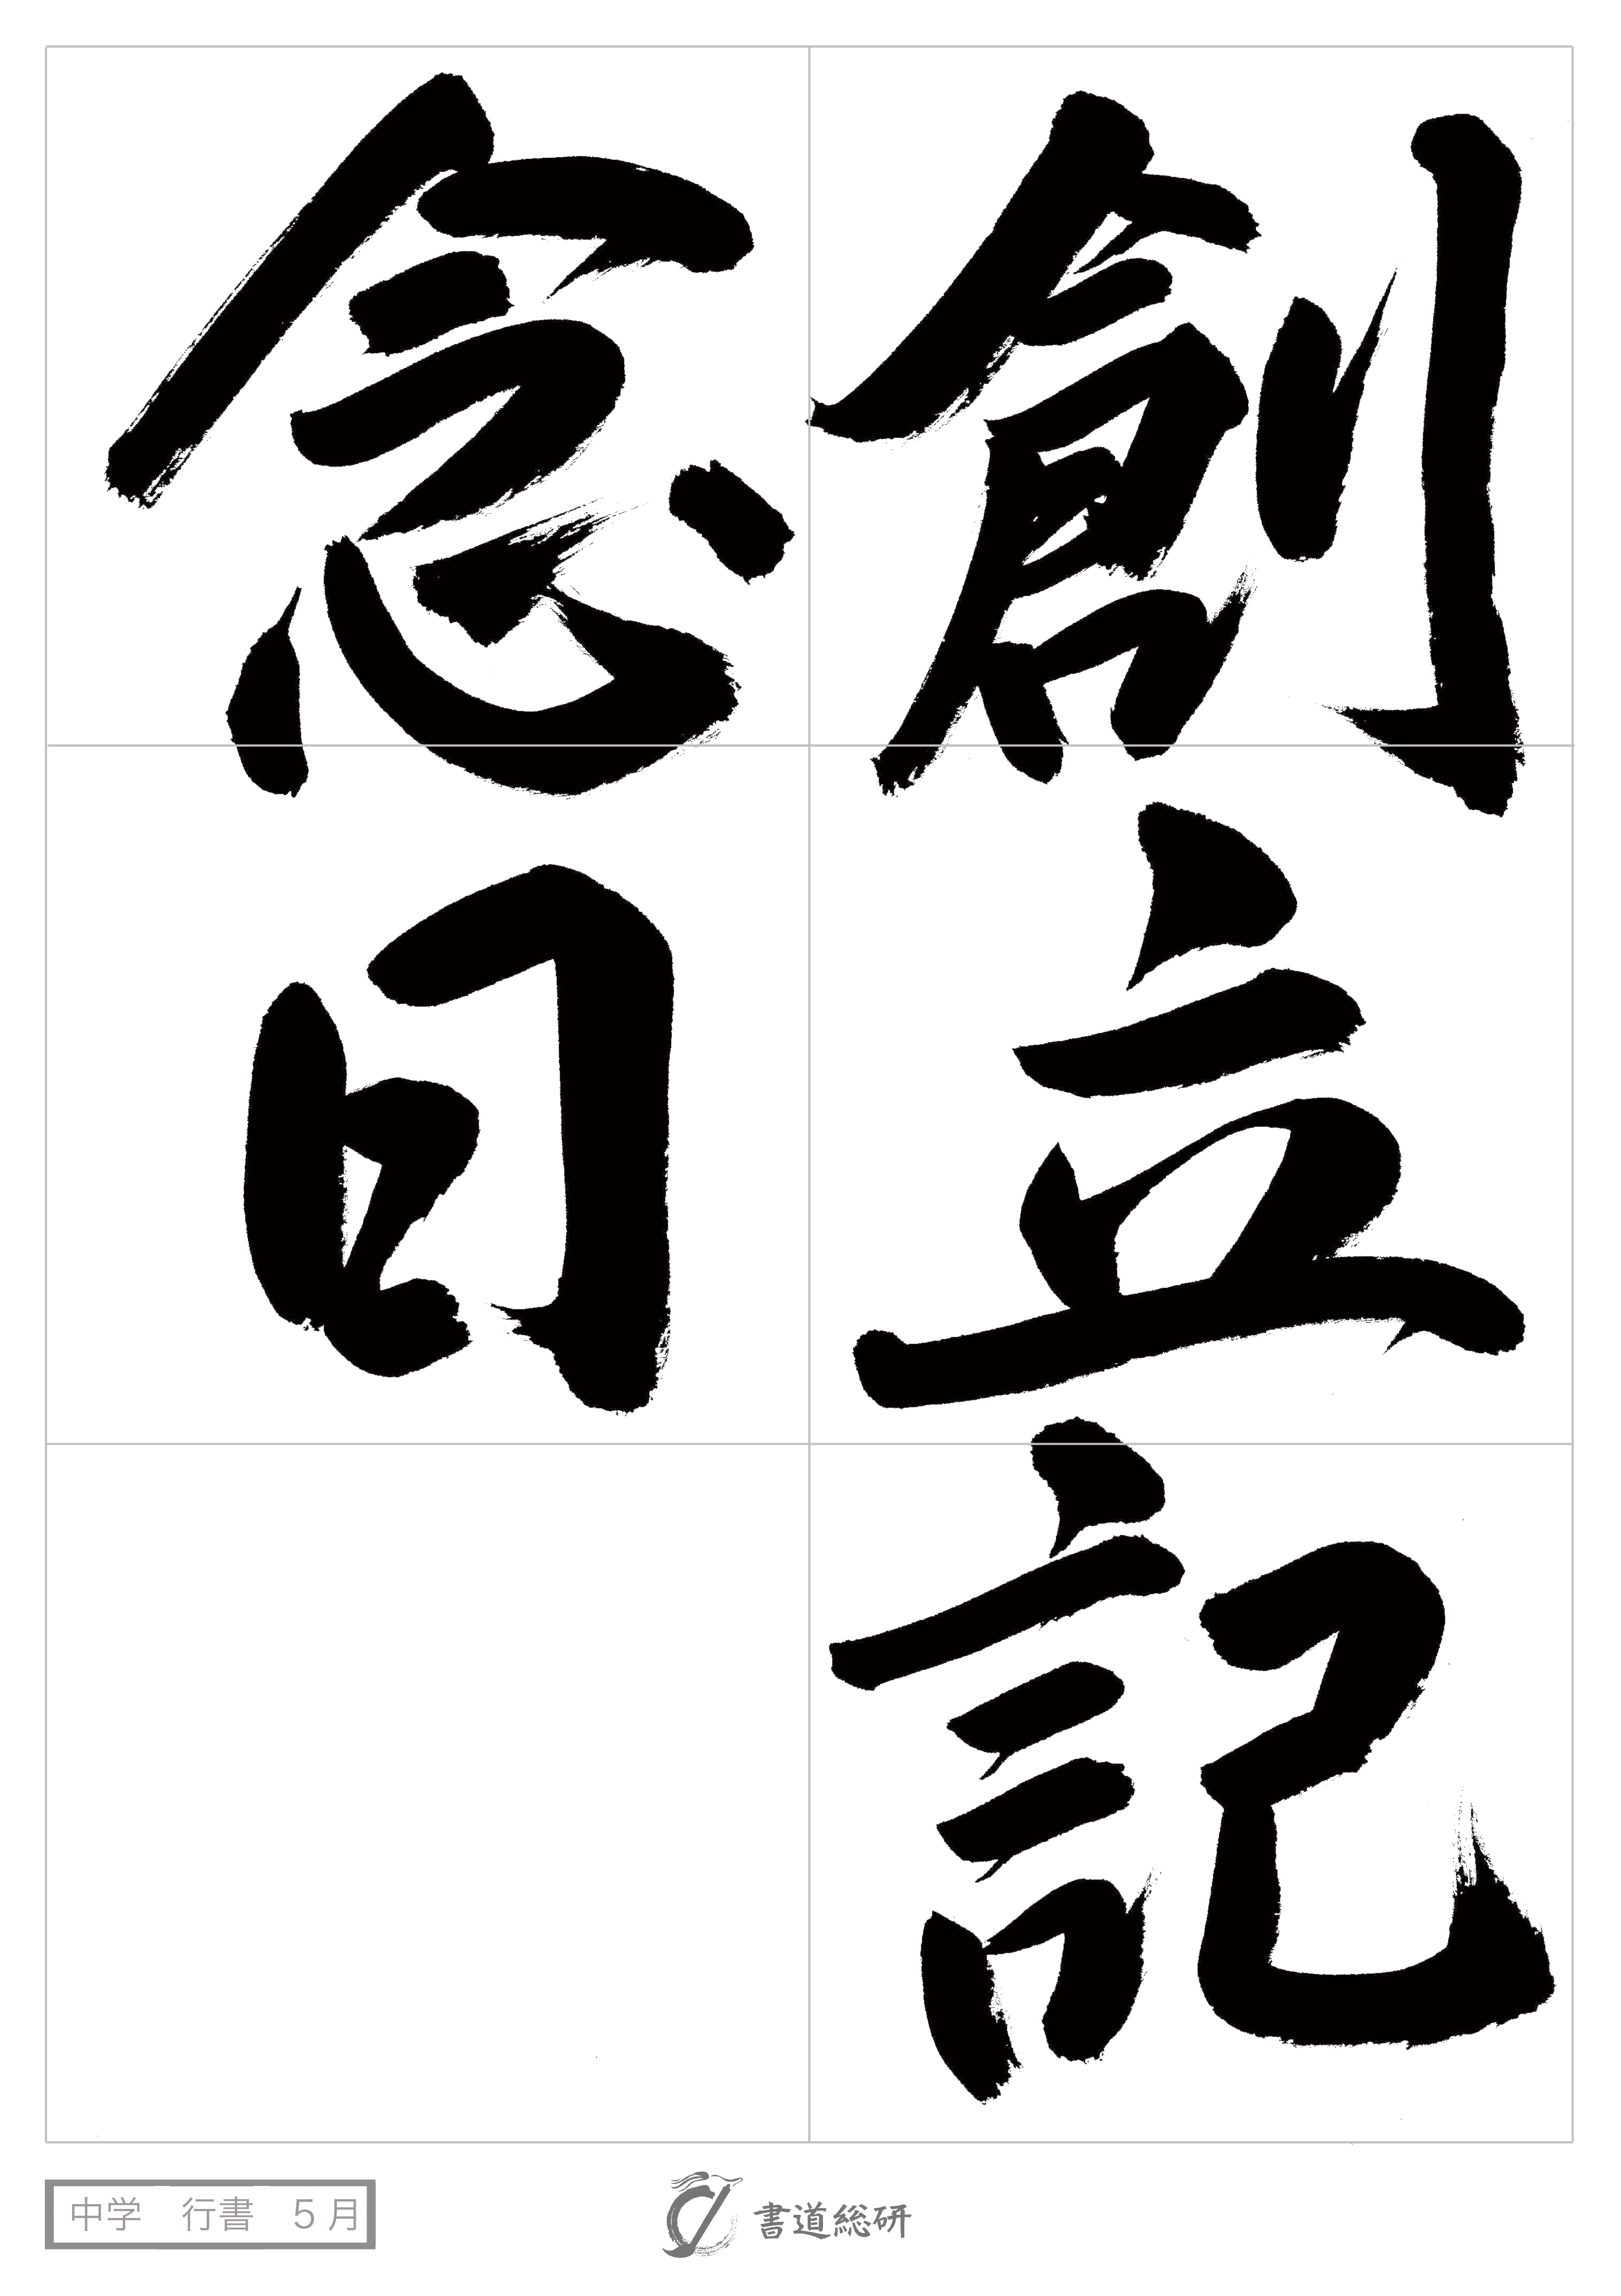 創立記
念日
中学　行書　５月
書道総研